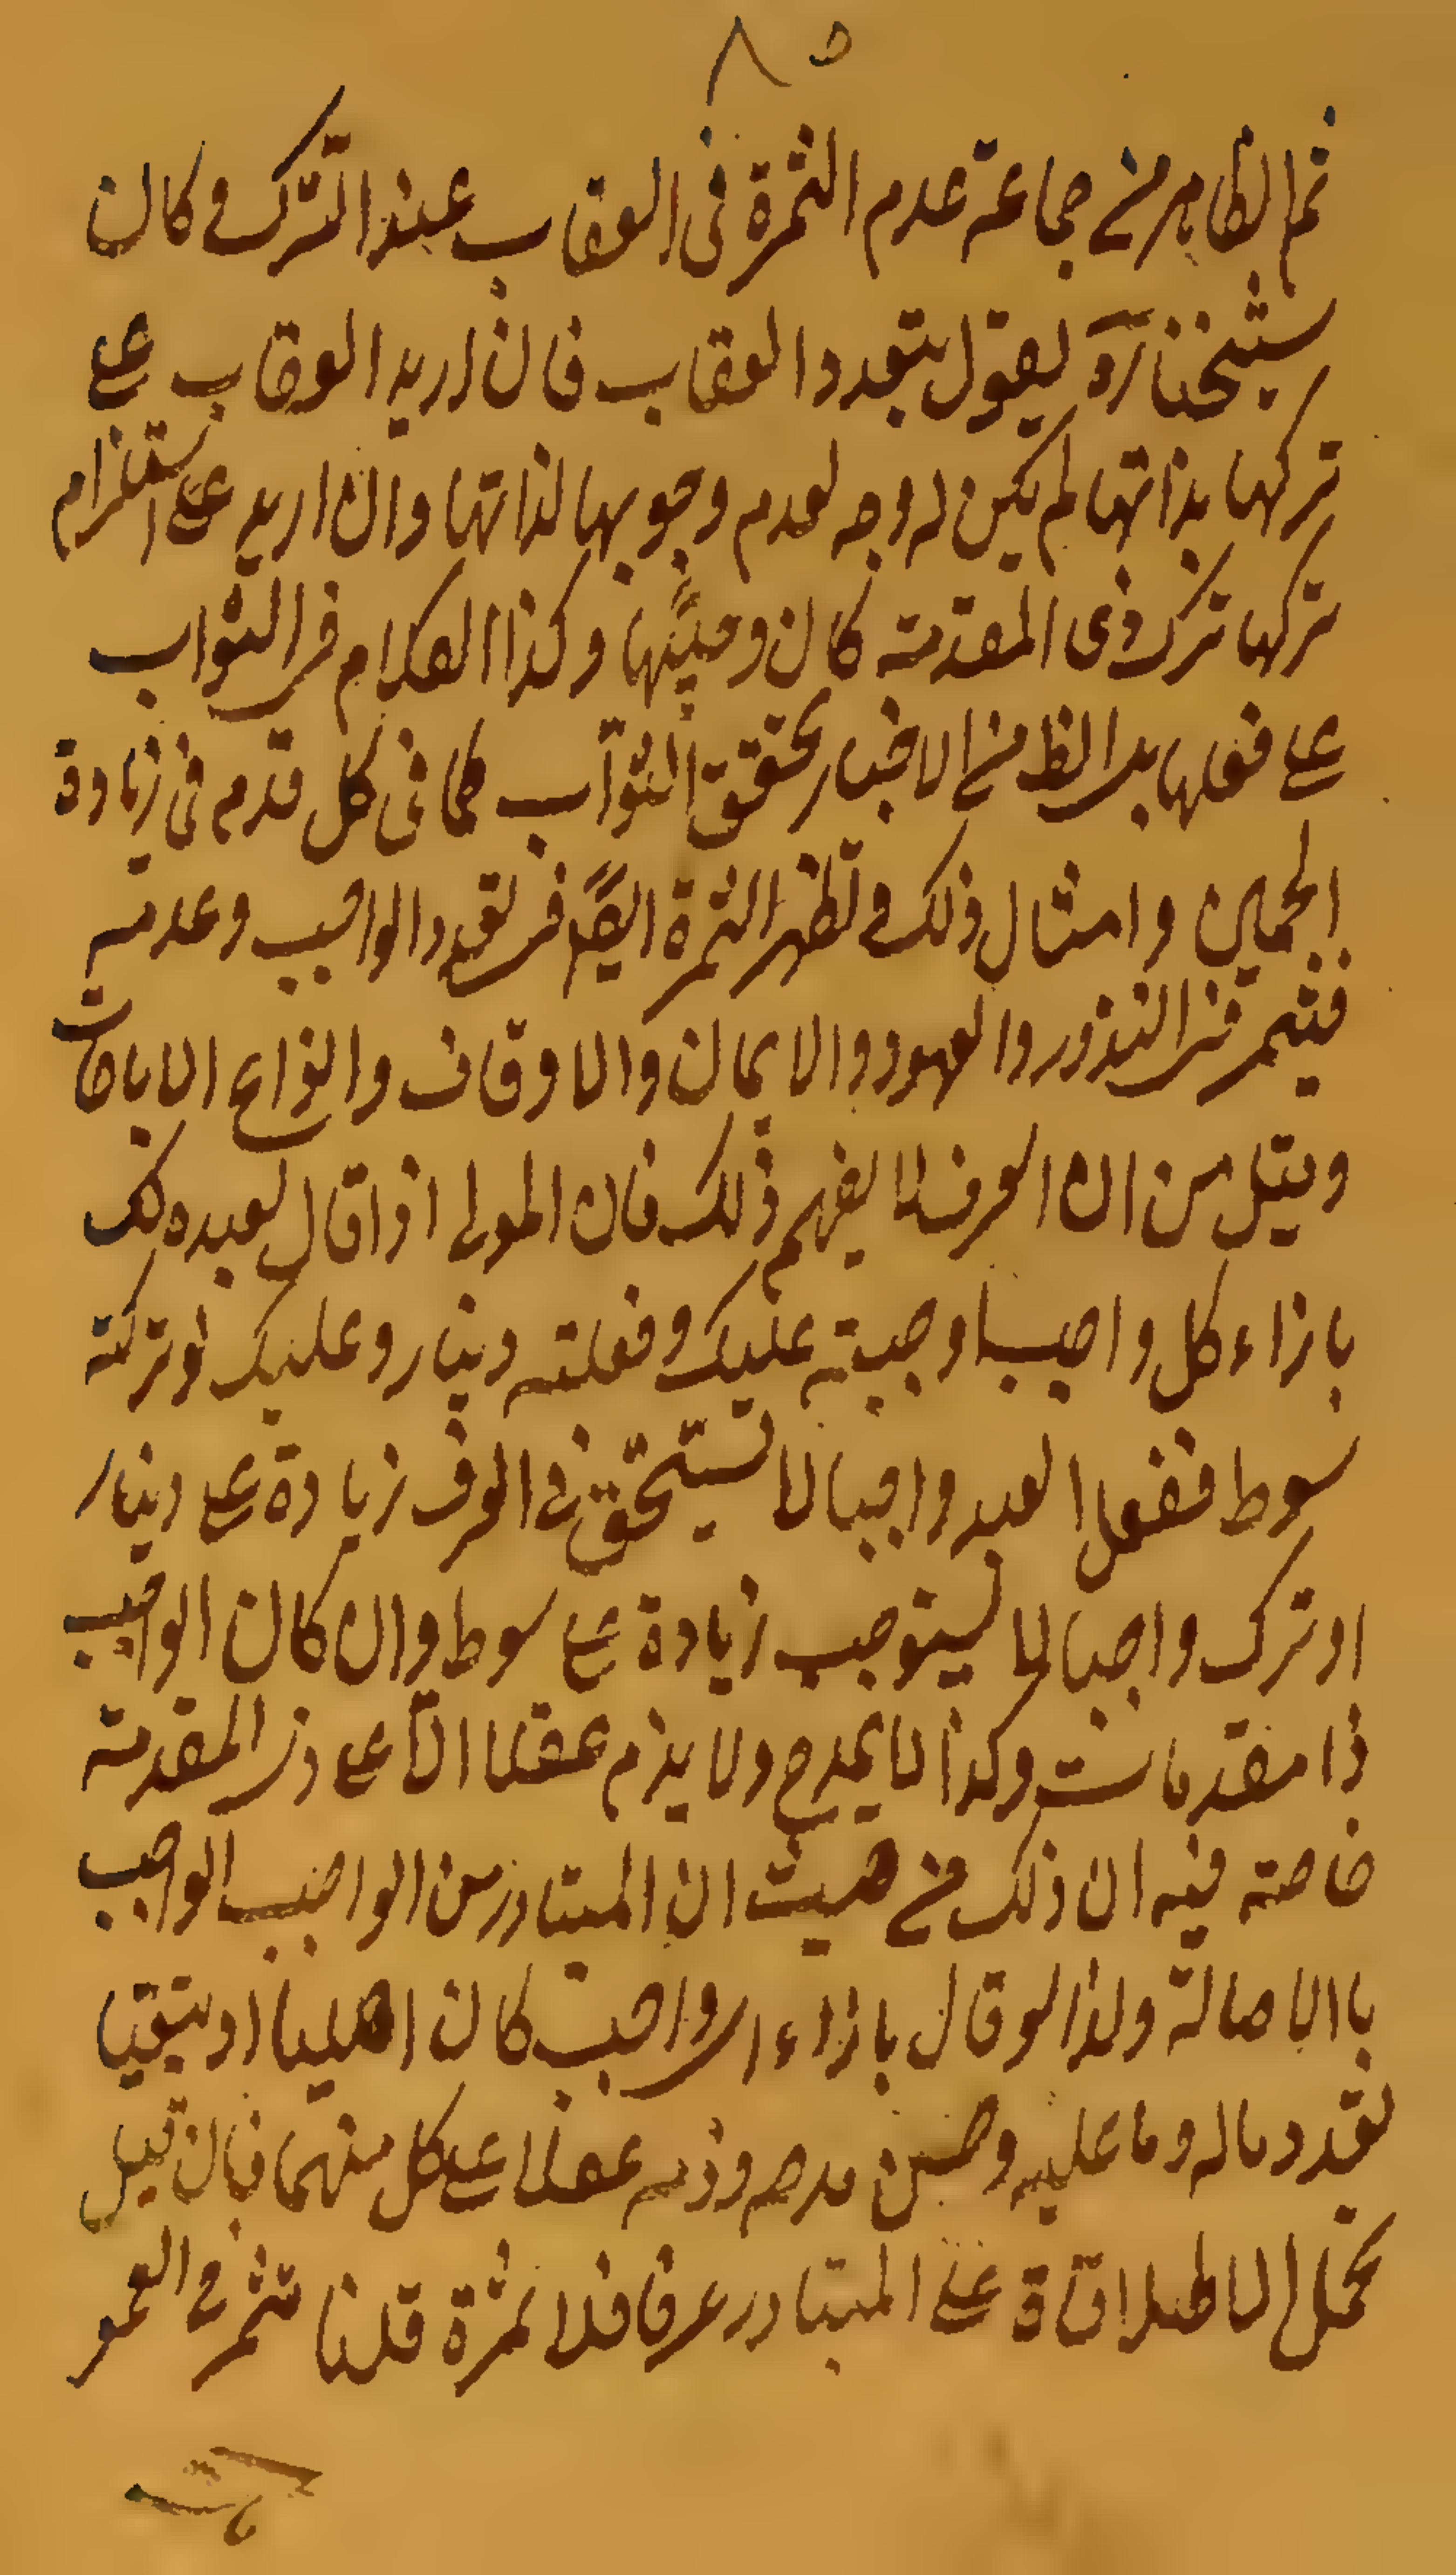 ٨٥
ثم الظاهر من جماعة عدم الثمرة فى العقاب عند الترك و كان
شيخنا ره يقول بتعدد العقاب فان اريد العقاب على
تركها بذاتها لم يكن له وجه لعدم وجوبها لذاتها وان اريد على استلزام
تركها ترك ذى المقدمة كان وجيها و كذا الكلام فى الثواب
على فعلها بل الظ من الاخبار تحقق الثواب كما فى كل قدم فى زيادة
الحسين و امثال ذلك و تظهر الثمرة ايضا فى تعدد الواجب و عدمه
فيثمر فى النذور والعهود والايمان والاوقاف وانواع الاباحات
وقيل من ان العرف لا يفهم ذلك فان المولى اذا قال لعبده لك
بازاء كل واجب اوجبته عليك و فعلته دينار و عليك لو تركته
سوط ففعل العبد واجبا لا يستحق فى العرف زيادة على دينار
او ترك واجبا لا يستوجب زيادة على سوط وان كان الواجب
ذا مقدمات و كذا لا يمدح ولا يذم عقلا الا على ذى المقدمة
خاصة فيه ان ذلك من حيث ان المتبادر من الواجب الواجب
باالاصالة ولذا لو قال بازاء اى واجب كان اصليا او تبعيا
تعدد ماله وما عليه وحسن مدحه وذمه عقلا على كل منهما فان قيل
تحمل الاطلاقات على المتبادر عرفا فلا ثمرة قلنا تثمر فى العمو